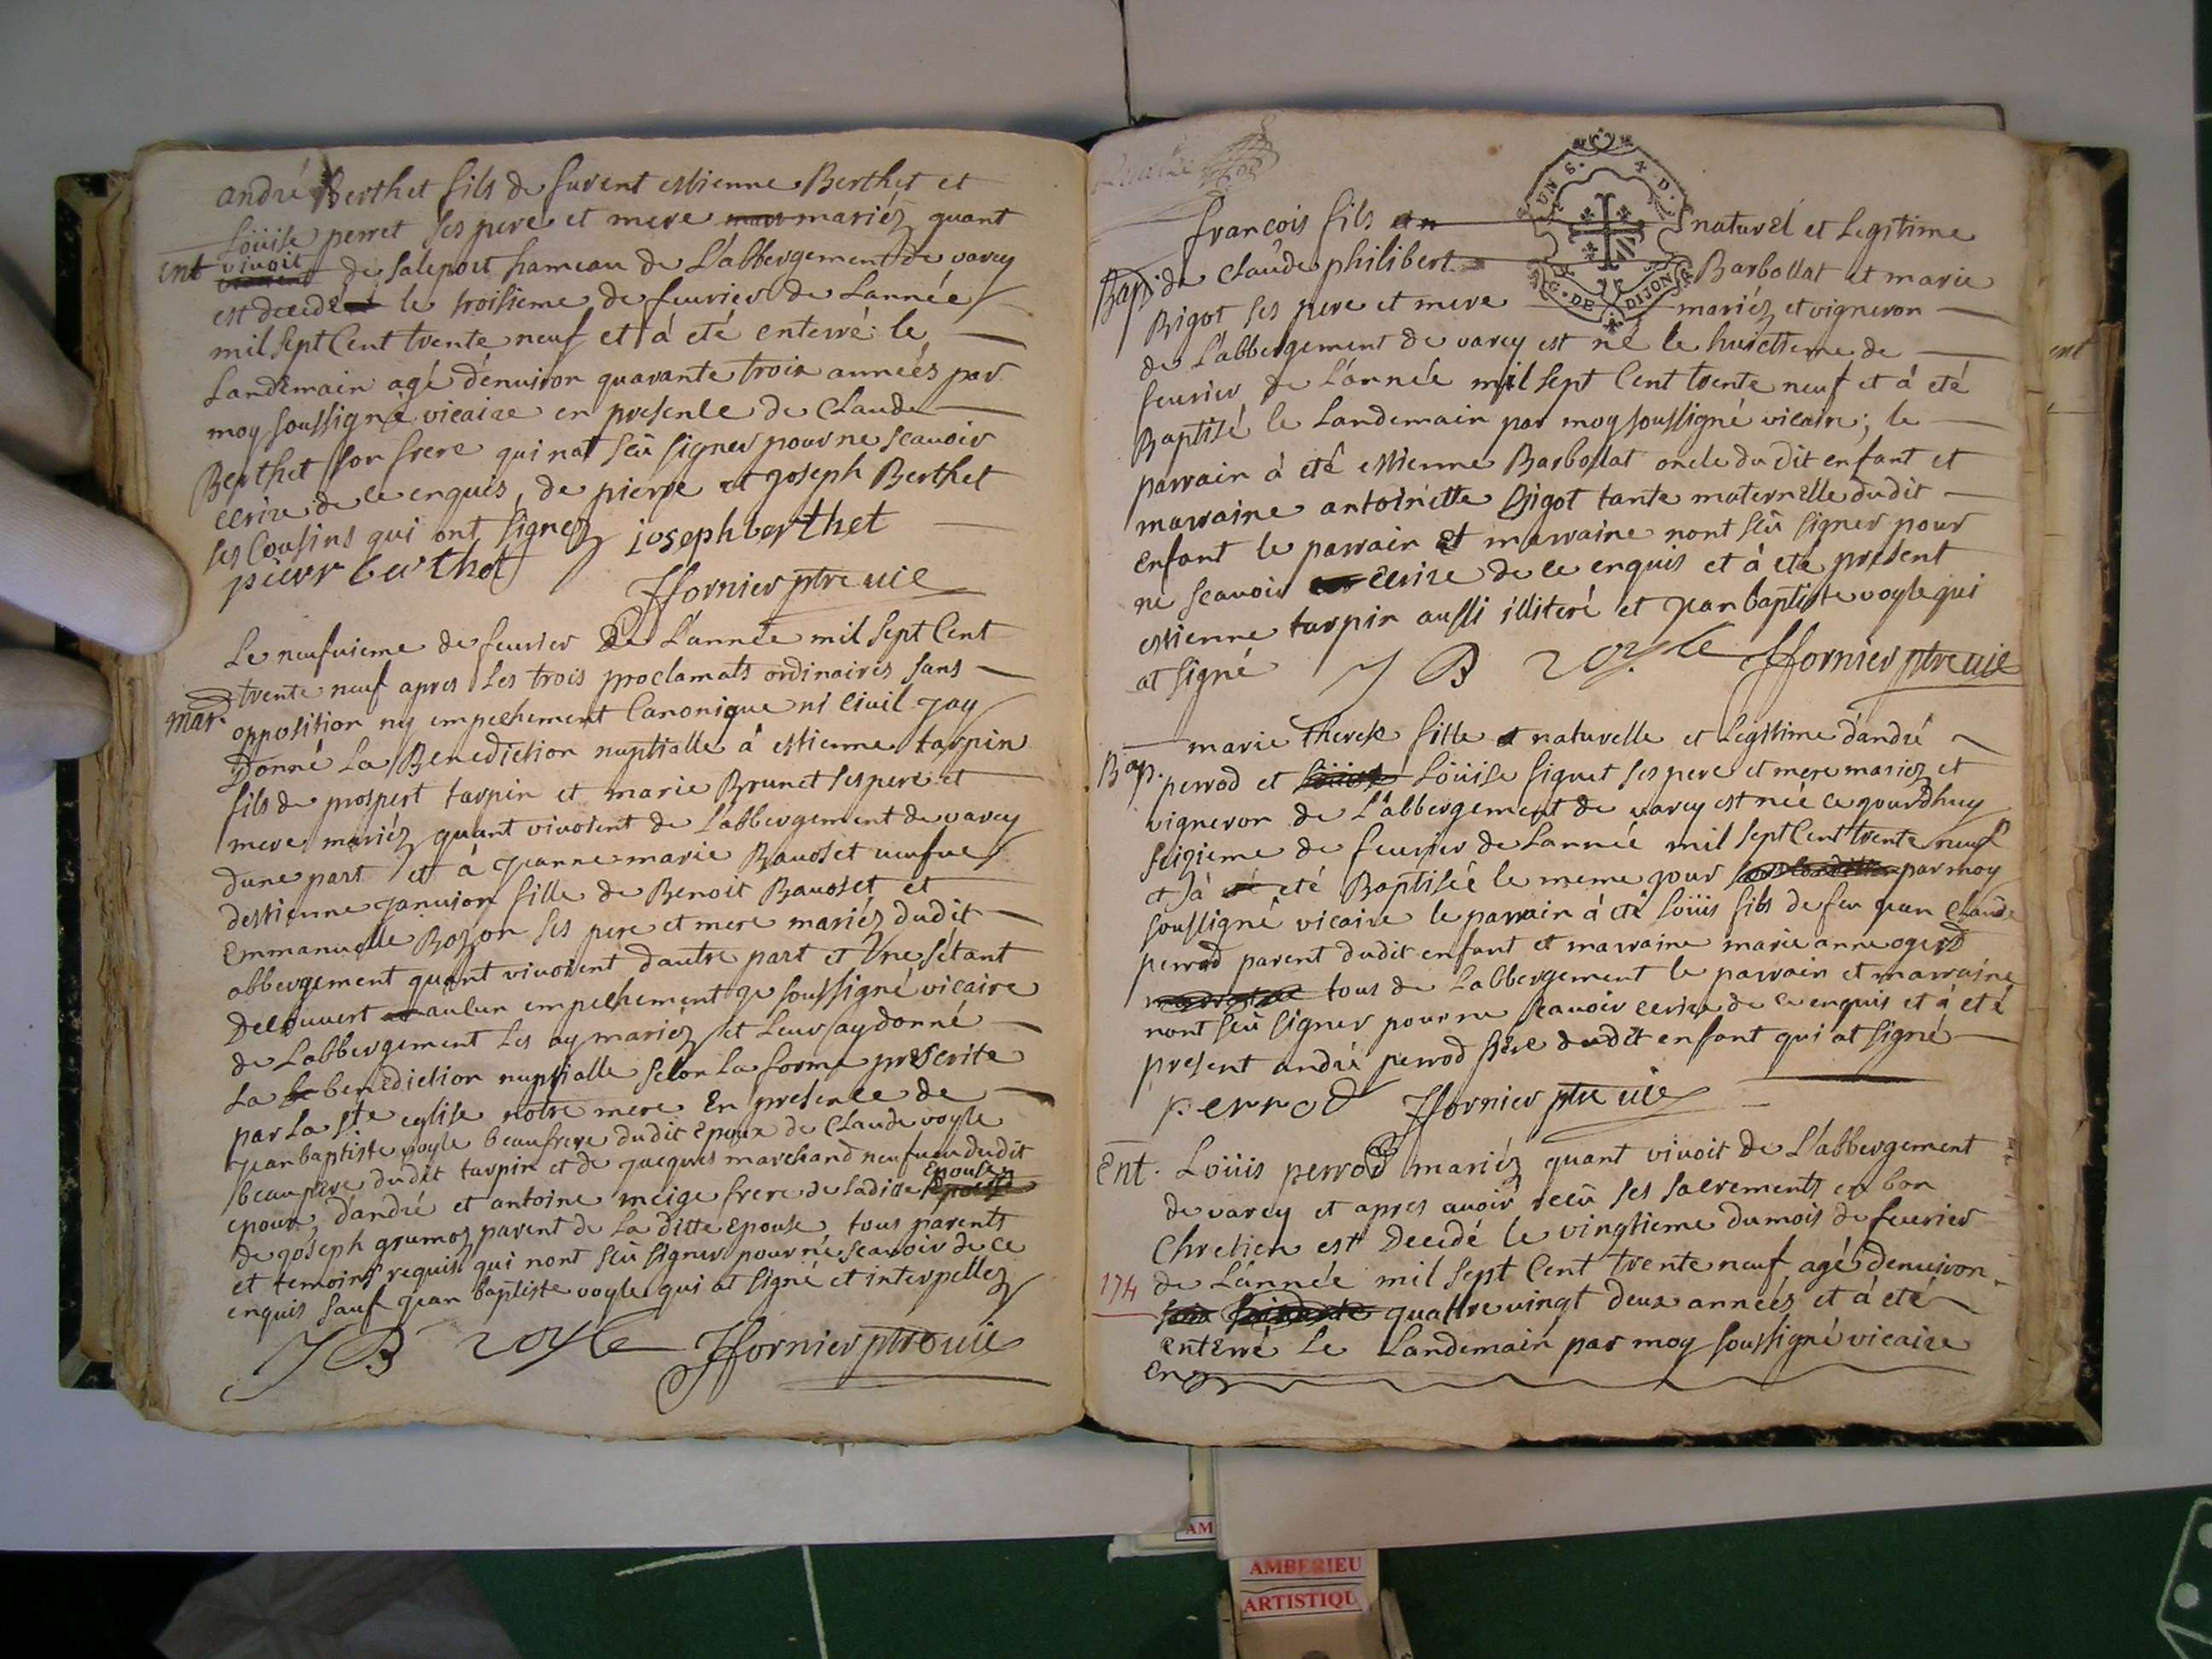 andré Berthet fils de furent estienne Berthet et
Loüise perret ses pere et mere mariéz quant
ent vivoit de saleport hameau de L'abbergement de varey
est decedé le troisieme de feuvrier de Lannée
mil sept Cent trente neuf et á eté enterré le
Landemain agé dénuiron quarante trois années par
moy soussigné vicaire en presence de Claude
Berthet son frere qui nat seû signer pour ne scauoir
ecrire de ce enquis, de pierre et joseph Berthet
ses Cousins qui ont signez
josephberthet
pierr berthet
Hornier ptre vic
Le neufuieme de feuvrier De L'année mil sept Cent
trente neuf apres Les trois proclamats ordinaires sans
mar. opposition ny empechement Canonique ni Ciuil jay
Donné La Benediction nuptialle á estienne tarpin
fils de prospert tarpin et marie Brunet ses pere et
mere mariéz quant vivoient de L'abbergement de varey
dune part et á jeanne marie Bauoset ueufue
destienne januion fille de Benoit Bauoset et
Emmanuelle Bozon ses pere et mere mariéz dudit
abbergement quant vivoient dautre part et Une sétant
Decouvert aucun empechement je soussigné vicaire
de Labbergement Les ay mariéz et Leur ay donné
La benediction nuptialle selon La forme prescrite
par La ste eglise notre mere En presence de
jean baptiste voyle beaufrere dudit epoux de Claude voyle
beaupere dudit tarpin et de jacques marchand neufueu dudit
epoux, d'andré et antoine meige frere de Ladite Epouse
de joseph grumoz parent de La ditte epouse tous parents
et temoins requis qui nont seû signer pour ne scauoir de ce
enquis sauf jean baptiste voyle qui at signé et interpellez
J B voyle Hornier ptre vic
francois fils naturel et Legitime
Bap. de Claude philibert Barbollat et marie
Bigot ses pere et mere mariéz et vigneron
de L'abbergement de varey est né le huictieme de
feuvrier de L'année mil sept Cent trente neuf et á eté
Baptisé le Landemain par moy soussigné vicaire; le
parrain à eté estienne Barbollat oncle du dit enfant et
marraine antoinette Bigot tante maternelle dudit
enfant le parrain et marraine nont seû signer pour
ne scauoir ecrire de ce enquis et à eté present
estienne tarpin aussi illiteré et jean baptiste voyle qui
at signé J B voyle Hornier ptre vic
marie therese fille naturelle et Legitime d'andré
Bap. perrod et Loüise siguet ses pere et mere mariéz et
vigneron de L'abbergement de varey est née ce jourdhuy
seizieme de feuvrier de Lannée mil sept Cent trente neuf
et à eté Baptisée le meme jour par moy
soussigné vicaire le parrain á eté Loüis fils de feu jean Claude
perrod parent dudit enfant et marraine marie anne ogerd
tous de Labbergement le parrain et marraine
nont seû signer pour ne scauoir ecrire de ce enquis et à eté
present andré perrod pere dudit enfant qui at signé
perrod Hornier ptre vic
Ent. Loüis perrod mariéz quant vivoit de L'abbergement
de varey et apres auoir receû ses sacrements en bon
Chretien est Decedé le vingtieme du mois de feuvrier
174 de L'année mil sept Cent trente neuf agé denuiron
quattre vingt deux années et á eté
enterré Le Landemain par moy soussigné vicaire
en
UNS. X. D.
G. DE DIJON
ent
AM
AMBERIEU
ARTISTIQU